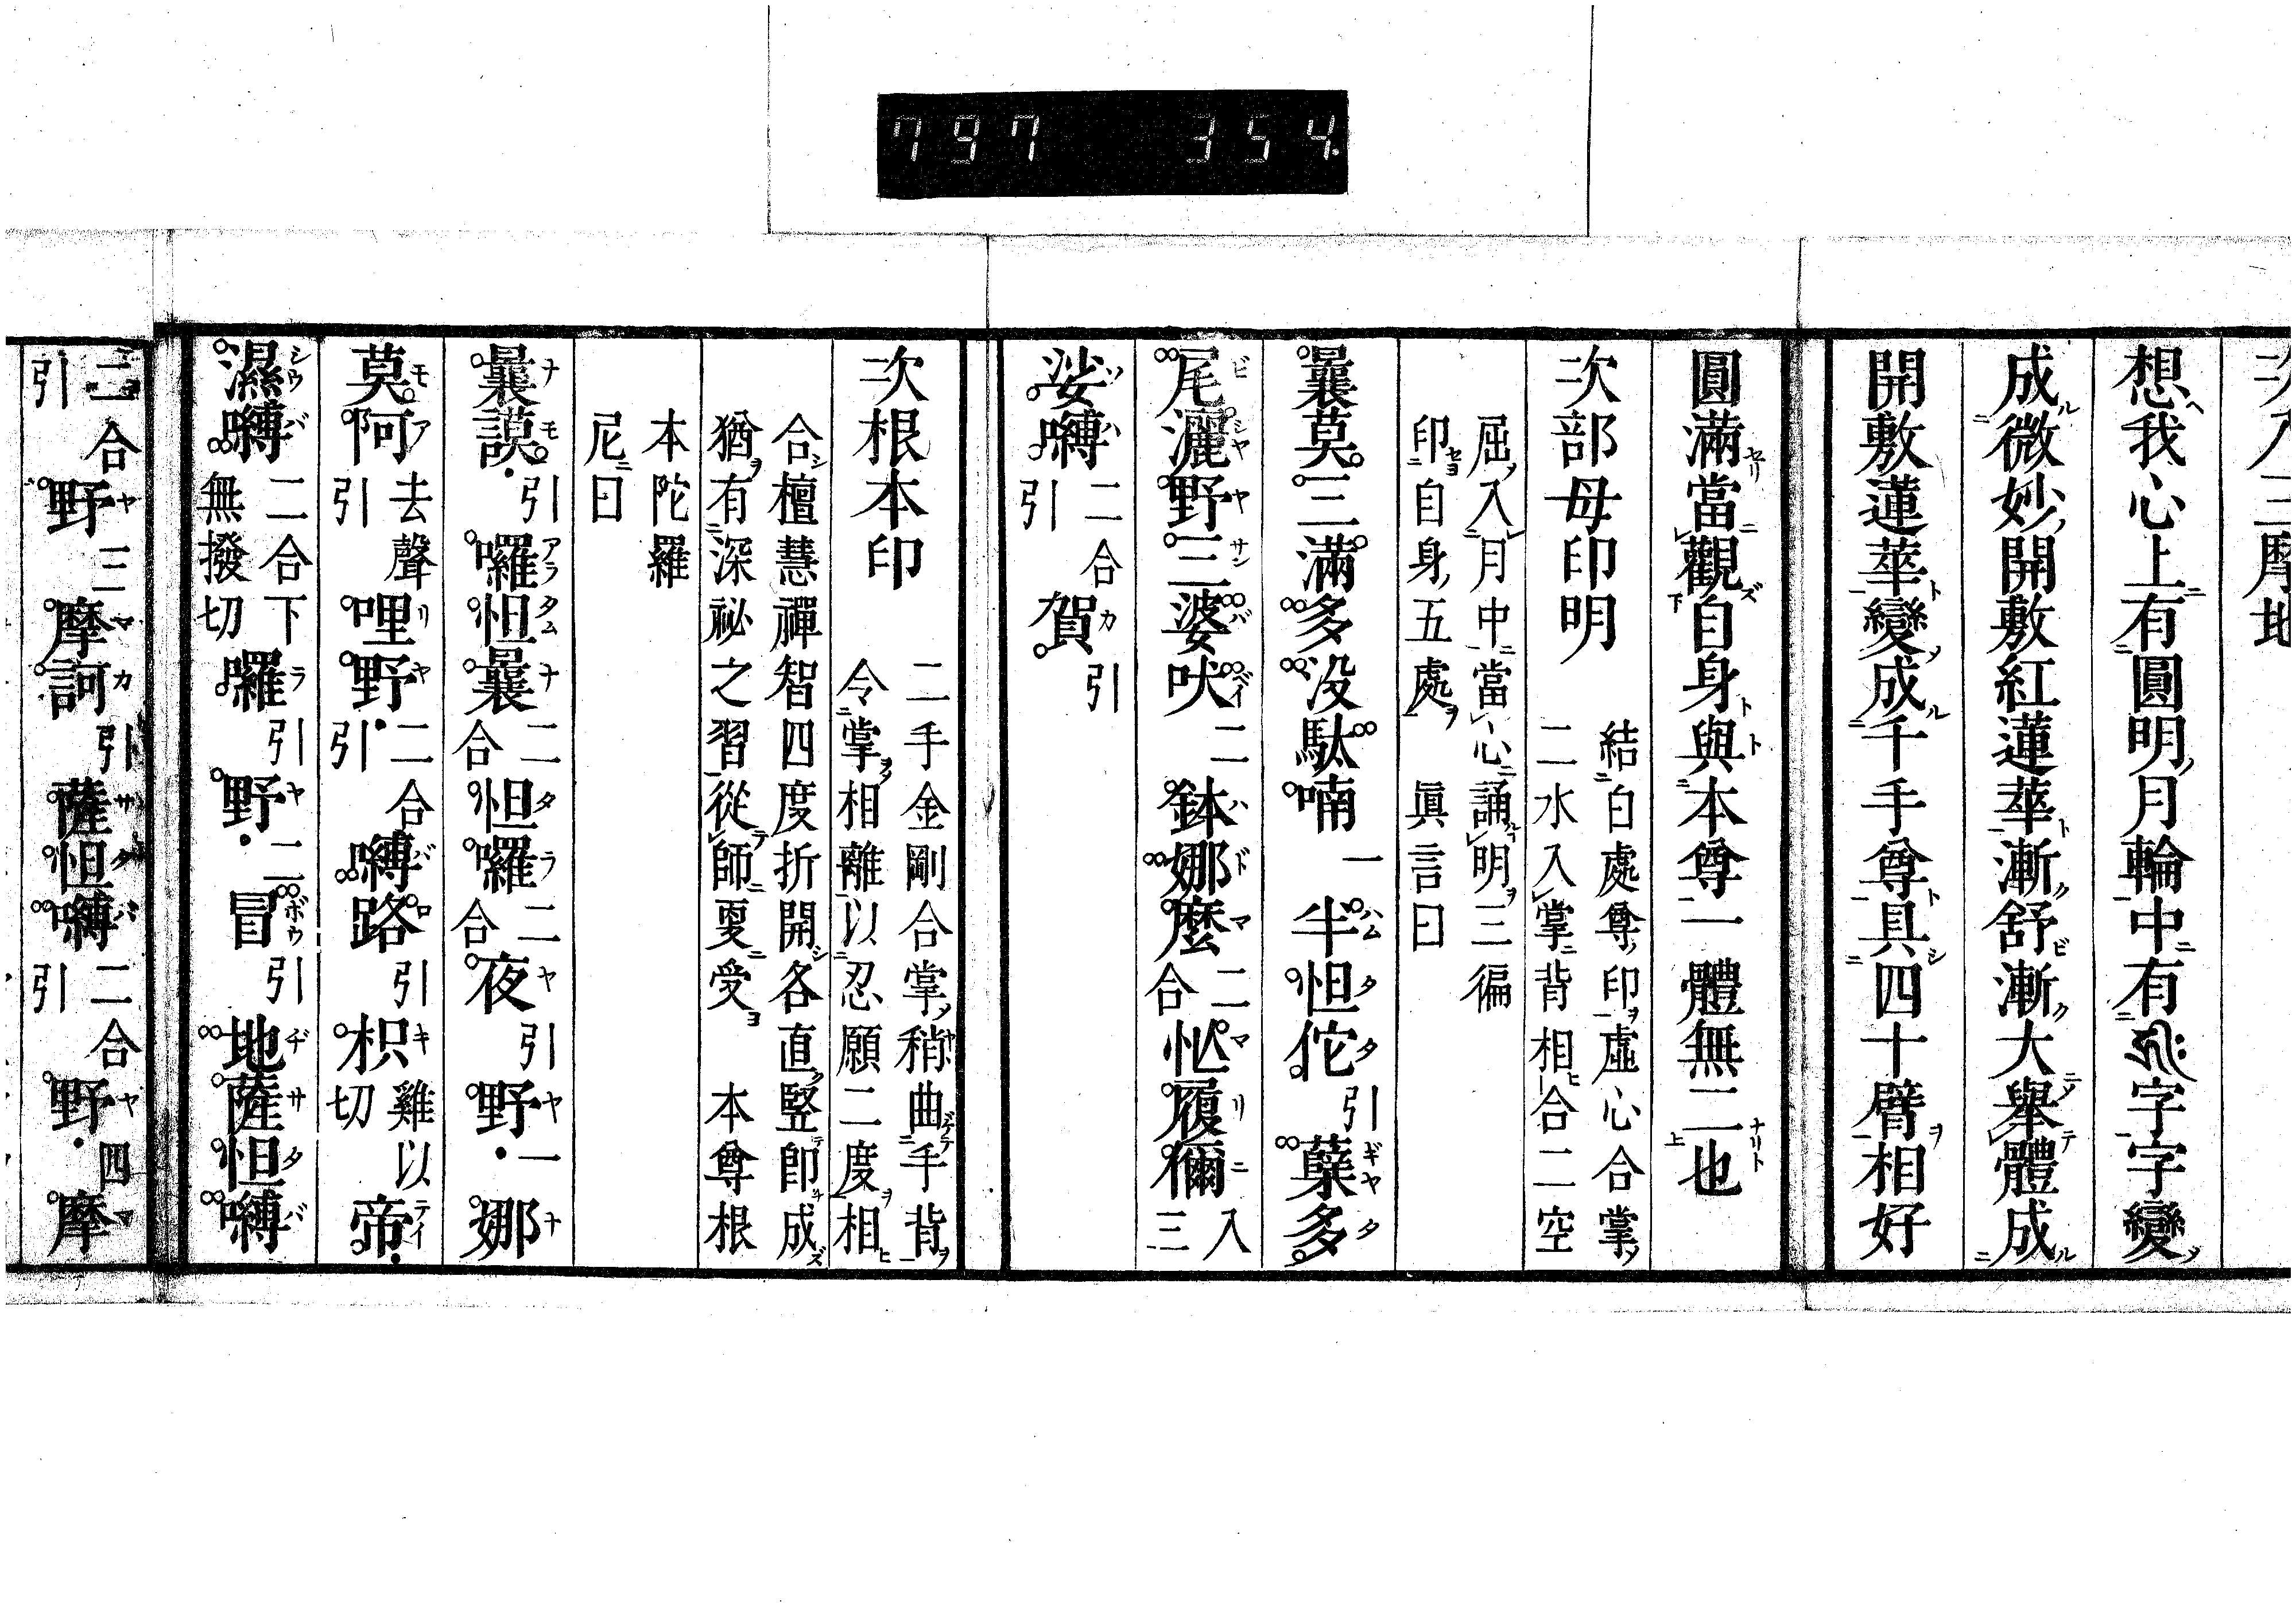 797 354
次入三摩地
想我心上有圓明月輪中有字字變
成微妙開敷紅蓮華漸舒漸大舉體成
開敷蓮華變成千手尊具四十臂相好
圓滿當觀自身與本尊一體無二也
次部母印明
結白處尊印虛心合掌
二水入掌背相合二空
屈入月中當心誦明三徧
印自身五處 眞言曰
曩莫三滿多沒馱喃一半怛佗引蘖多
尾灑野三婆吠二鉢娜麼二合忙履儞入三
娑嚩二合引賀引
次根本印
二手金剛合掌稍曲手背
令掌相離以忍願二度相
合檀慧禪智四度折開各直竪即成
猶有深祕之習從師更受 本尊根
本陀羅
尼曰
曩謨引囉怛曩二合怛囉二合夜引野一娜
莫阿去聲引哩野二合引嚩路引枳雞以切帝
濕嚩二合下無撥切囉引野二冒引地薩怛嚩
二合引野三摩訶引薩怛嚩二合引野四摩